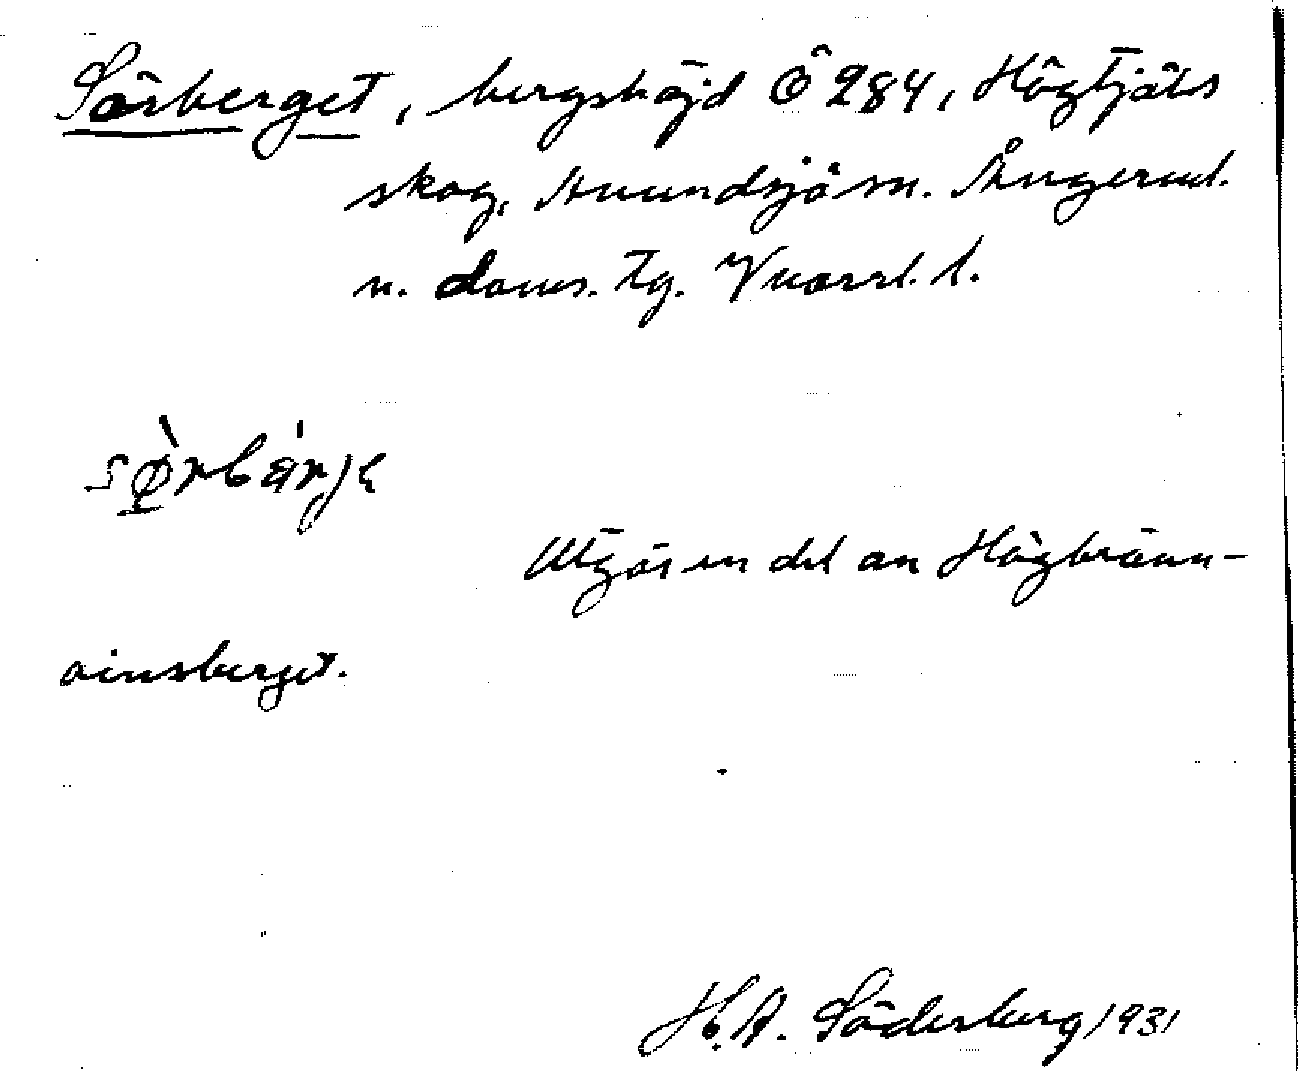 Sörberget, bergshöjd Ö 284, Högtjäls
skog, Anundsjö sn. Ångerml.
n. doms. tg. Vnorrl. l.
sø̀rbár̀je
Utgör en del av Högbränn-
ainsberget.
H. A. Söderberg 1931